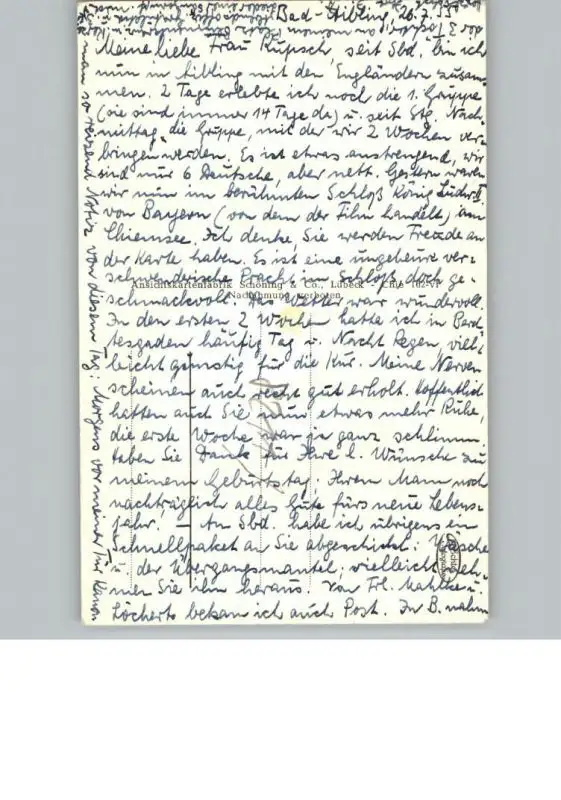 Bad-Aibling, 26.7.55
Meine liebe Frau Rupsch, seit Sbd. bin ich
nun in Aibling mit den Engländern zusam-
men. 2 Tage erlebte ich noch die 1. Gruppe
(sie sind immer 14 Tage da) u. seit Stg. Nach-
mittag die Gruppe, mit der wir 2 Wochen ver-
bringen werden. Es ist etwas anstrengend, wir
sind nur 6 Deutsche, aber nett. Gestern waren
wir nun im berühmten Schloß König Ludw. II
von Bayern (von dem der Film handelt) am
Chiemsee. Ich denke, Sie werden Freude an
der Karte haben. Es ist eine ungeheure ver-
schwenderische Pracht im Schloß, doch ge-
Ansichtskartenfabrik Schöning & Co., Lübeck
Nachahmung verboten
schmackvoll. Das Wetter war wundervoll.
In den ersten 2 Wochen hatte ich in Berch-
tesgaden häufig Tag u. Nacht Regen, viel-
leicht günstig für die Kur. Meine Nerven
scheinen auch recht gut erholt. Hoffentlich
hatten auch Sie nun etwas mehr Ruhe,
die erste Woche war ja ganz schlimm.
Haben Sie Dank für Ihre l. Wünsche zu
meinem Geburtstag. Ihrem Mann noch
nachträglich alles Gute fürs neue Lebens-
jahr. — Am Sbd. habe ich übrigens ein
Schnellpaket an Sie abgeschickt: Wäsche
u. der Übergangsmantel; vielleicht neh-
men Sie ihn heraus. Von Frl.
Löcherts bekam ich auch Post. In B. nahm
man so reizend Notiz von diesem Tag: Morgens vor meiner Tür